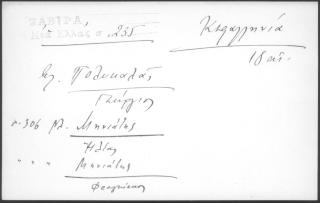 ΖΑΒΙΡΑ
Νέα Ελλάς σ. 235
Κεφαλληνία
18 αι.
βλ. Πολυκαλάς
Γεώργιος
σ. 306 βλ. Μηνιάτης
Ηλίας
" " " Μηνιάτης
Φραγκίσκος